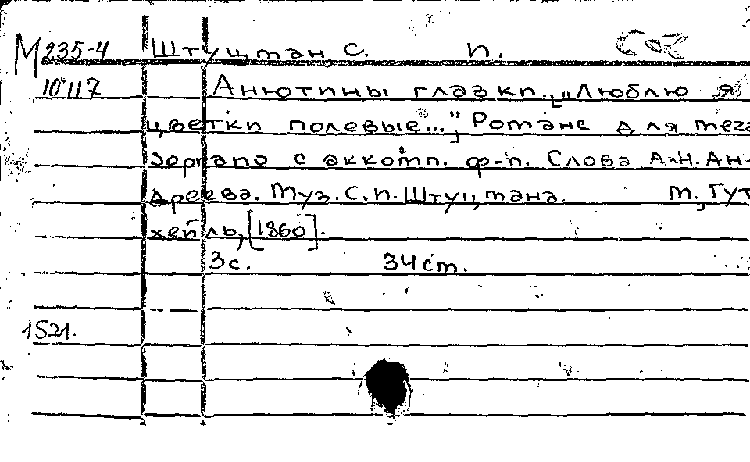 М 235-4 Штуцман, С. П.
10117 Анютины глазки. ["Люблю я
цветки полевые..."] Романс для меццо-
сопрано с аккомп. ф-п. Слова А.Н. Ан-
дреева. Муз. С.П. Штуцмана. М., Гут-
хейль, [1860].
3 с. 34 см.
1521.